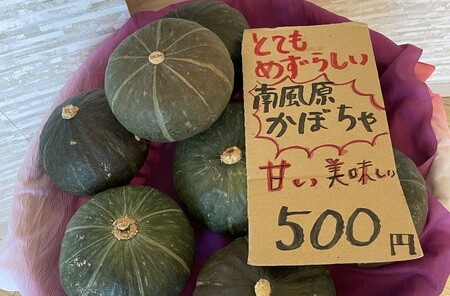 とても
めずらしい
南風原
かぼちゃ
甘い 美味しい
500円